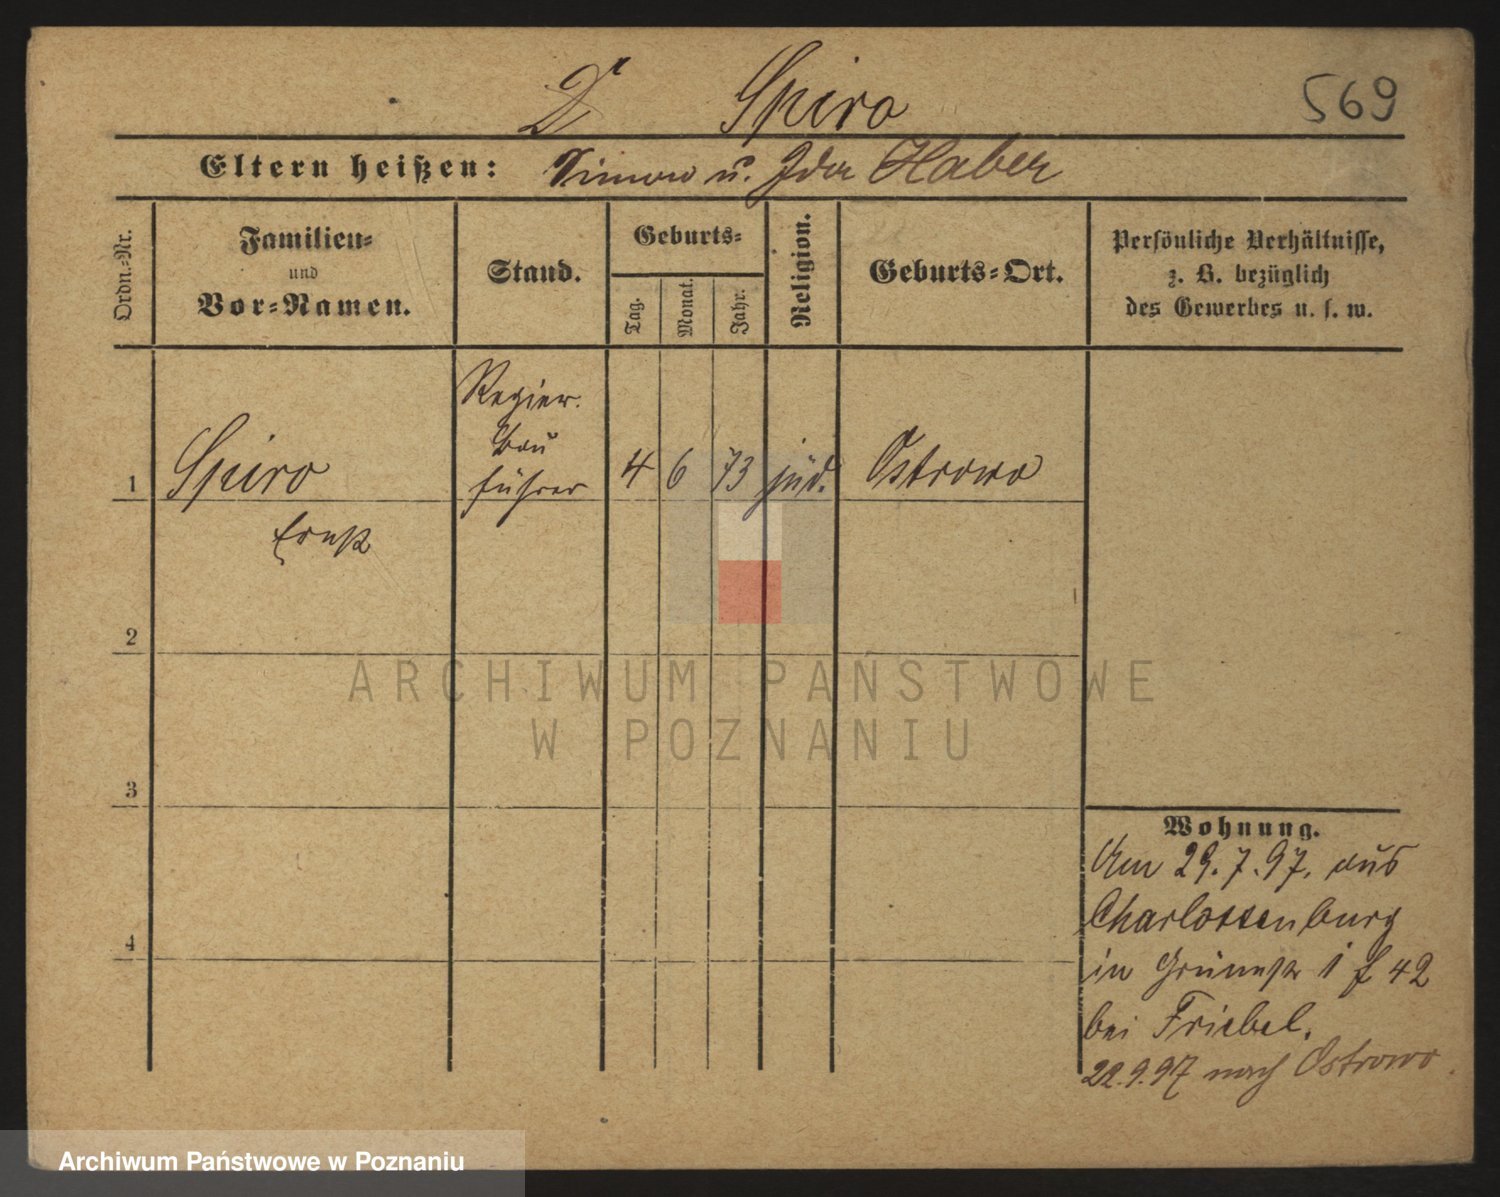 Dr Spiro 569
Eltern heißen: Simon u. Ida Haber
Ordn.-Nr.
Familien-
und
Vor-Namen.
Stand.
Geburts-
Tag.
Monat.
Jahr.
Religion.
Geburts-Ort.
Persönliche Verhältnisse,
z. B. bezüglich
des Gewerbes u. s. w.
1 Spiro
Ernst
Regier.
bau
führer
4 6 73 jüd. Ostrowo
2
3
4
Wohnung.
Am 29.7.97. aus
Charlottenburg
in Grünestr 1 f 42
bei Friebel.
22.9.97 nach Ostrowo.
ARCHIWUM PAŃSTWOWE
W POZNANIU
Archiwum Państwowe w Poznaniu